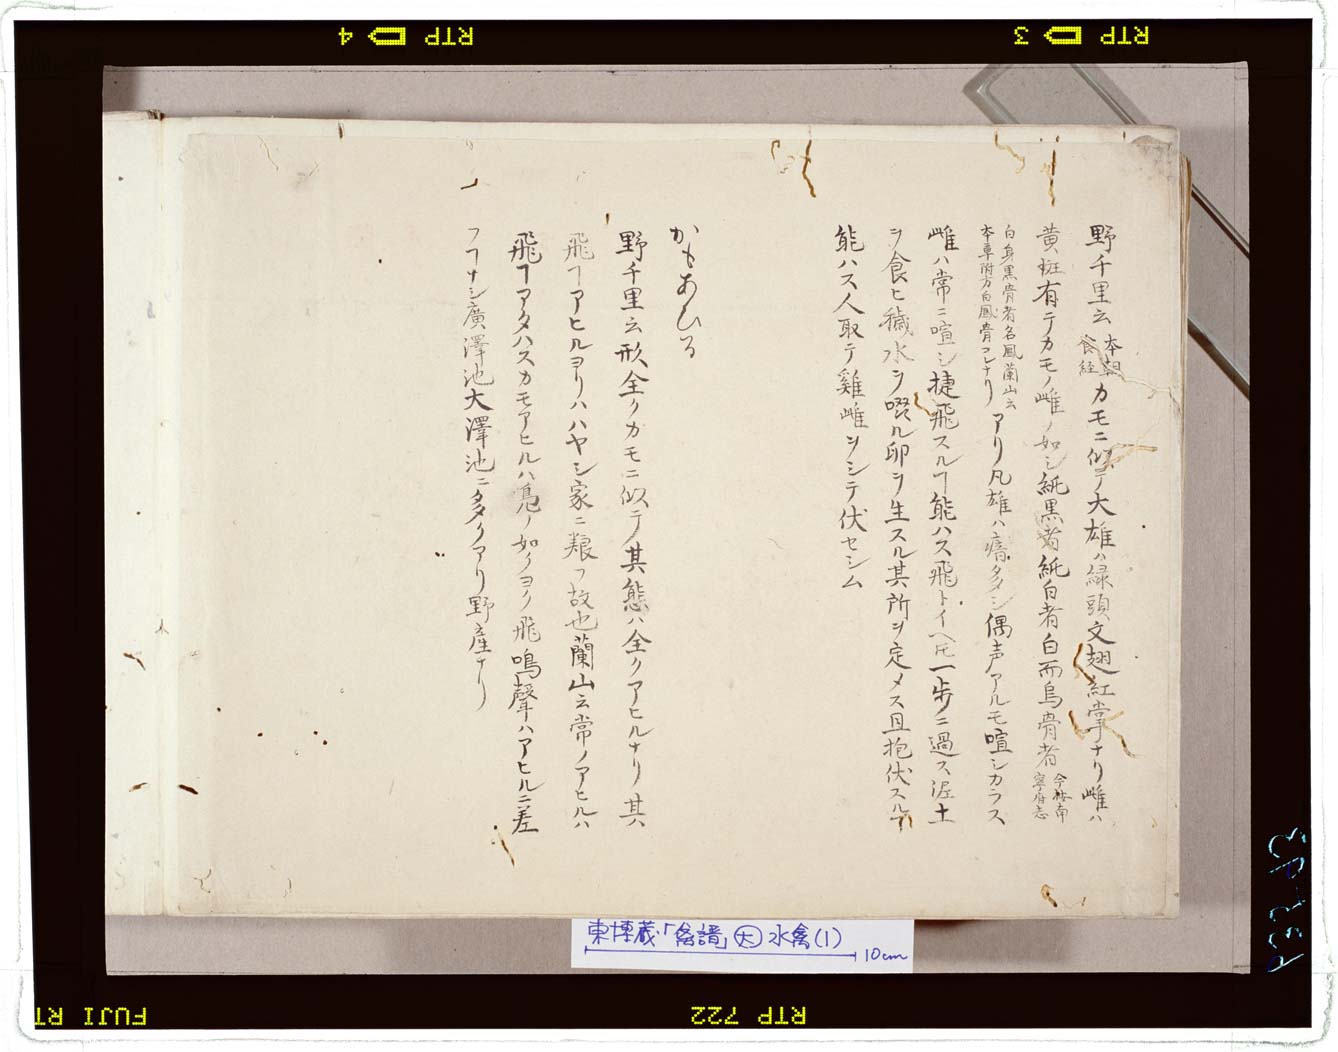 野千里云本朝食経カモニ似テ大雄ハ緑頭文翅紅掌ナリ雌ハ
黄斑有テカモノ雌ノ如シ純黒者純白者白而烏骨者今按南寧府志
白身黒骨者名鳳蘭山云本草附方白鳳膏コレナリアリ凡雄ハ瘖多シ偶声アルモ喧シカラス
雌ハ常ニ喧シ捷飛スルヿ能ハス飛トイヘ𪜈一歩ニ過ス泥土
ヲ食ヒ穢水ヲ啜ル卵ヲ生スル其所ヲ定メス且抱伏スルヿ
能ハス人取テ雞雌ヲシテ伏セシム
かもあひる
野千里云形全クカモニ似テ其態ハ全クアヒルナリ其
飛ヿアヒルヨリハハヤシ家ニ粮フ故也蘭山云常ノアヒルハ
飛ヿアタハスカモアヒルハ鳬ノ如クヨク飛鳴聲ハアヒルニ差
フヿナシ廣澤池大澤池ニ多クアリ野産ナリ
東博蔵「禽譜」大 水禽(1)
10cm
RTP 4
RTP 3
FUJI RT
RTP 722